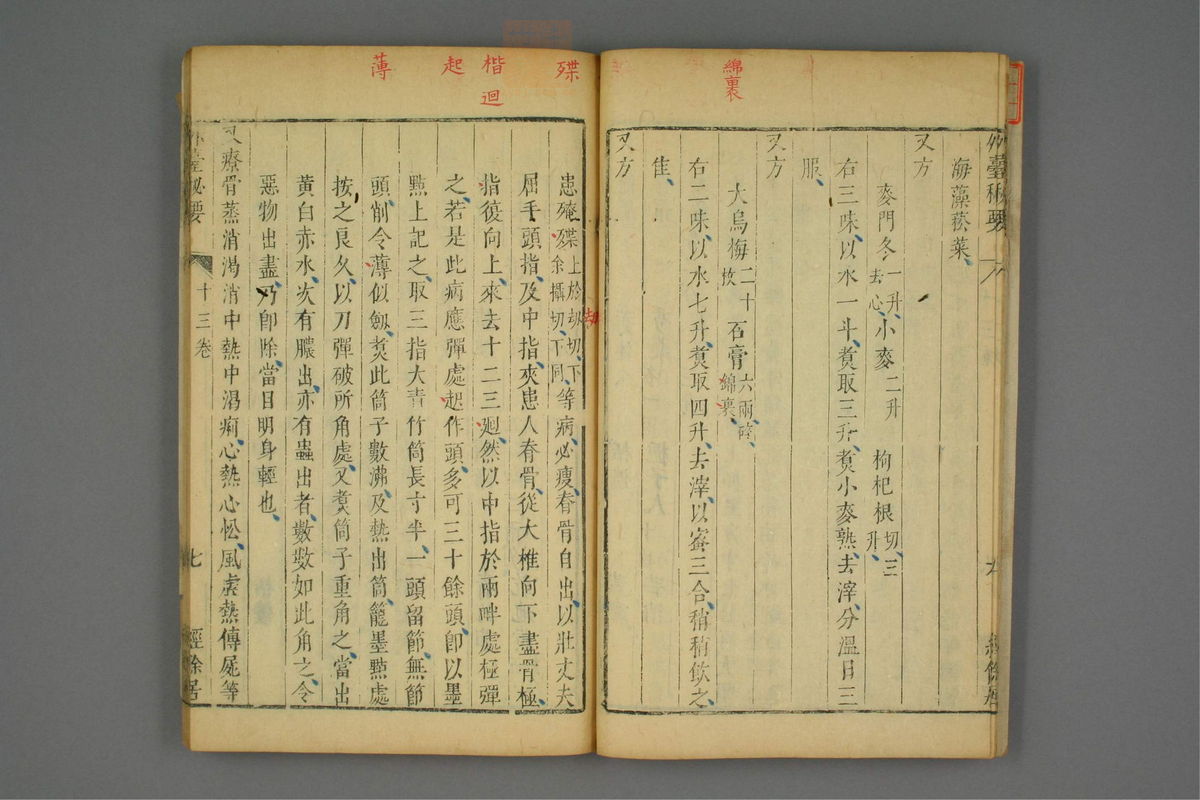 綿裹
外臺秘要
海藻菘菜
又方
麥門冬一升去心 小麥二升 枸杞根切三升
右三味以水一斗煑取三升煑小麥熟去滓分溫日三
服
又方
大烏梅二十枚 石膏六兩碎綿裹
右二味以水七升煑取四升去滓以蜜三合稍稍飲之
隹
又方
殜
楷
迴
起
薄
患殗殜上於刧切下余攝切下同等病必瘦脊骨自出以壯丈夫
屈手頭指及中指夾患人脊骨從大椎向下盡骨極
指復向上來去十二三廻然以中指於兩畔處極彈
之若是此病應彈處起作頭多可三十餘頭卽以墨
㸃上記之取三指大青竹筒長寸半一頭留節無節
頭削令薄似劔煑此筒子數沸及熱出筒籠墨㸃處
按之良久以刀彈破所角處又煑筒子重角之當出
黄白赤水次有膿出亦有蟲出者數數如此角之令
惡物出盡乃卽除當目明身輕也
又療骨蒸消渴消中熱中渴痢心熱心忪風虚熱傳屍等
外臺秘要 十三卷 七 經餘居